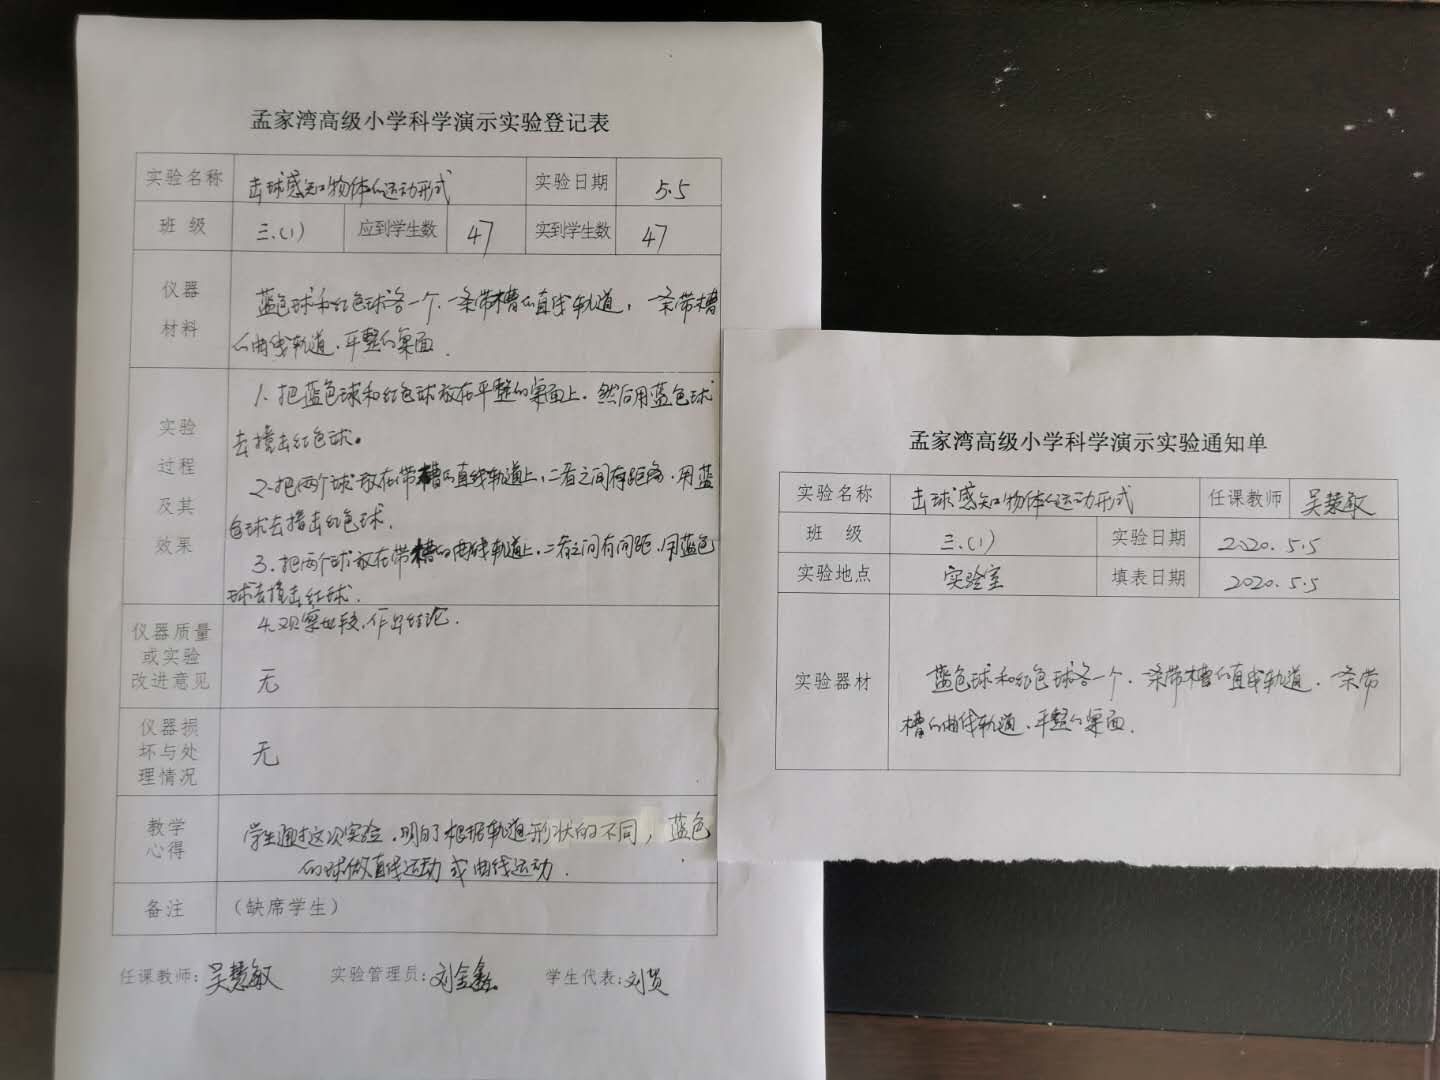 孟家湾高级小学科学演示实验登记表
实验名称 击球感知物体的运动形式 实验日期 5.5
班 级 三.(1) 应到学生数 47 实到学生数 47
仪器
材料
蓝色球和红色球各一个、一条带槽的直线轨道, 一条带槽
的曲线轨道、平整的桌面.
实验
过程
及其
效果
1. 把蓝色球和红色球放在平整的桌面上. 然后用蓝色球
去撞击红色球。
2. 把两个球放在带槽的直线轨道上, 二者之间有距离. 用蓝
色球去撞击红色球.
3. 把两个球放在带槽的曲线轨道上, 二者之间有间距. 用蓝色
球去撞击红球.
4. 观察比较, 作出结论.
仪器质量
或实验
改进意见
无
仪器损
坏与处
理情况
无
教学
心得
学生通过这次实验, 明白了根据轨道形状的不同, 蓝色
的球做直线运动或曲线运动.
备注 (缺席学生)
任课教师: 吴慧敏 实验管理员: 刘金鑫 学生代表: 刘贺
孟家湾高级小学科学演示实验通知单
实验名称 击球感知物体的运动形式 任课教师 吴慧敏
班 级 三.(1) 实验日期 2020.5.5
实验地点 实验室 填表日期 2020.5.5
实验器材
蓝色球和红色球各一个、一条带槽的直线轨道. 一条带
槽的曲线轨道、平整的桌面.